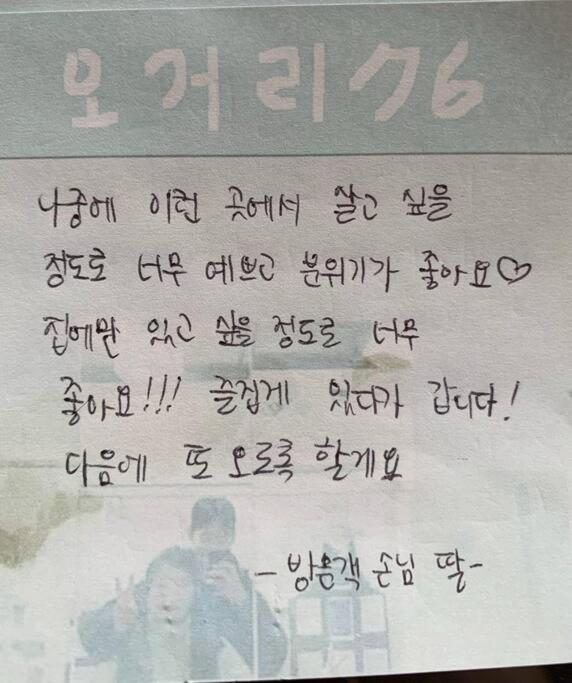 오거리76
나중에 이런 곳에서 살고 싶을
정도로 너무 예쁘고 분위기가 좋아요♡
집에만 있고 싶을 정도로 너무
좋아요!!! 즐겁게 있다가 갑니다!
다음에 또 오로록 할게요
- 방은객 손님 딸-